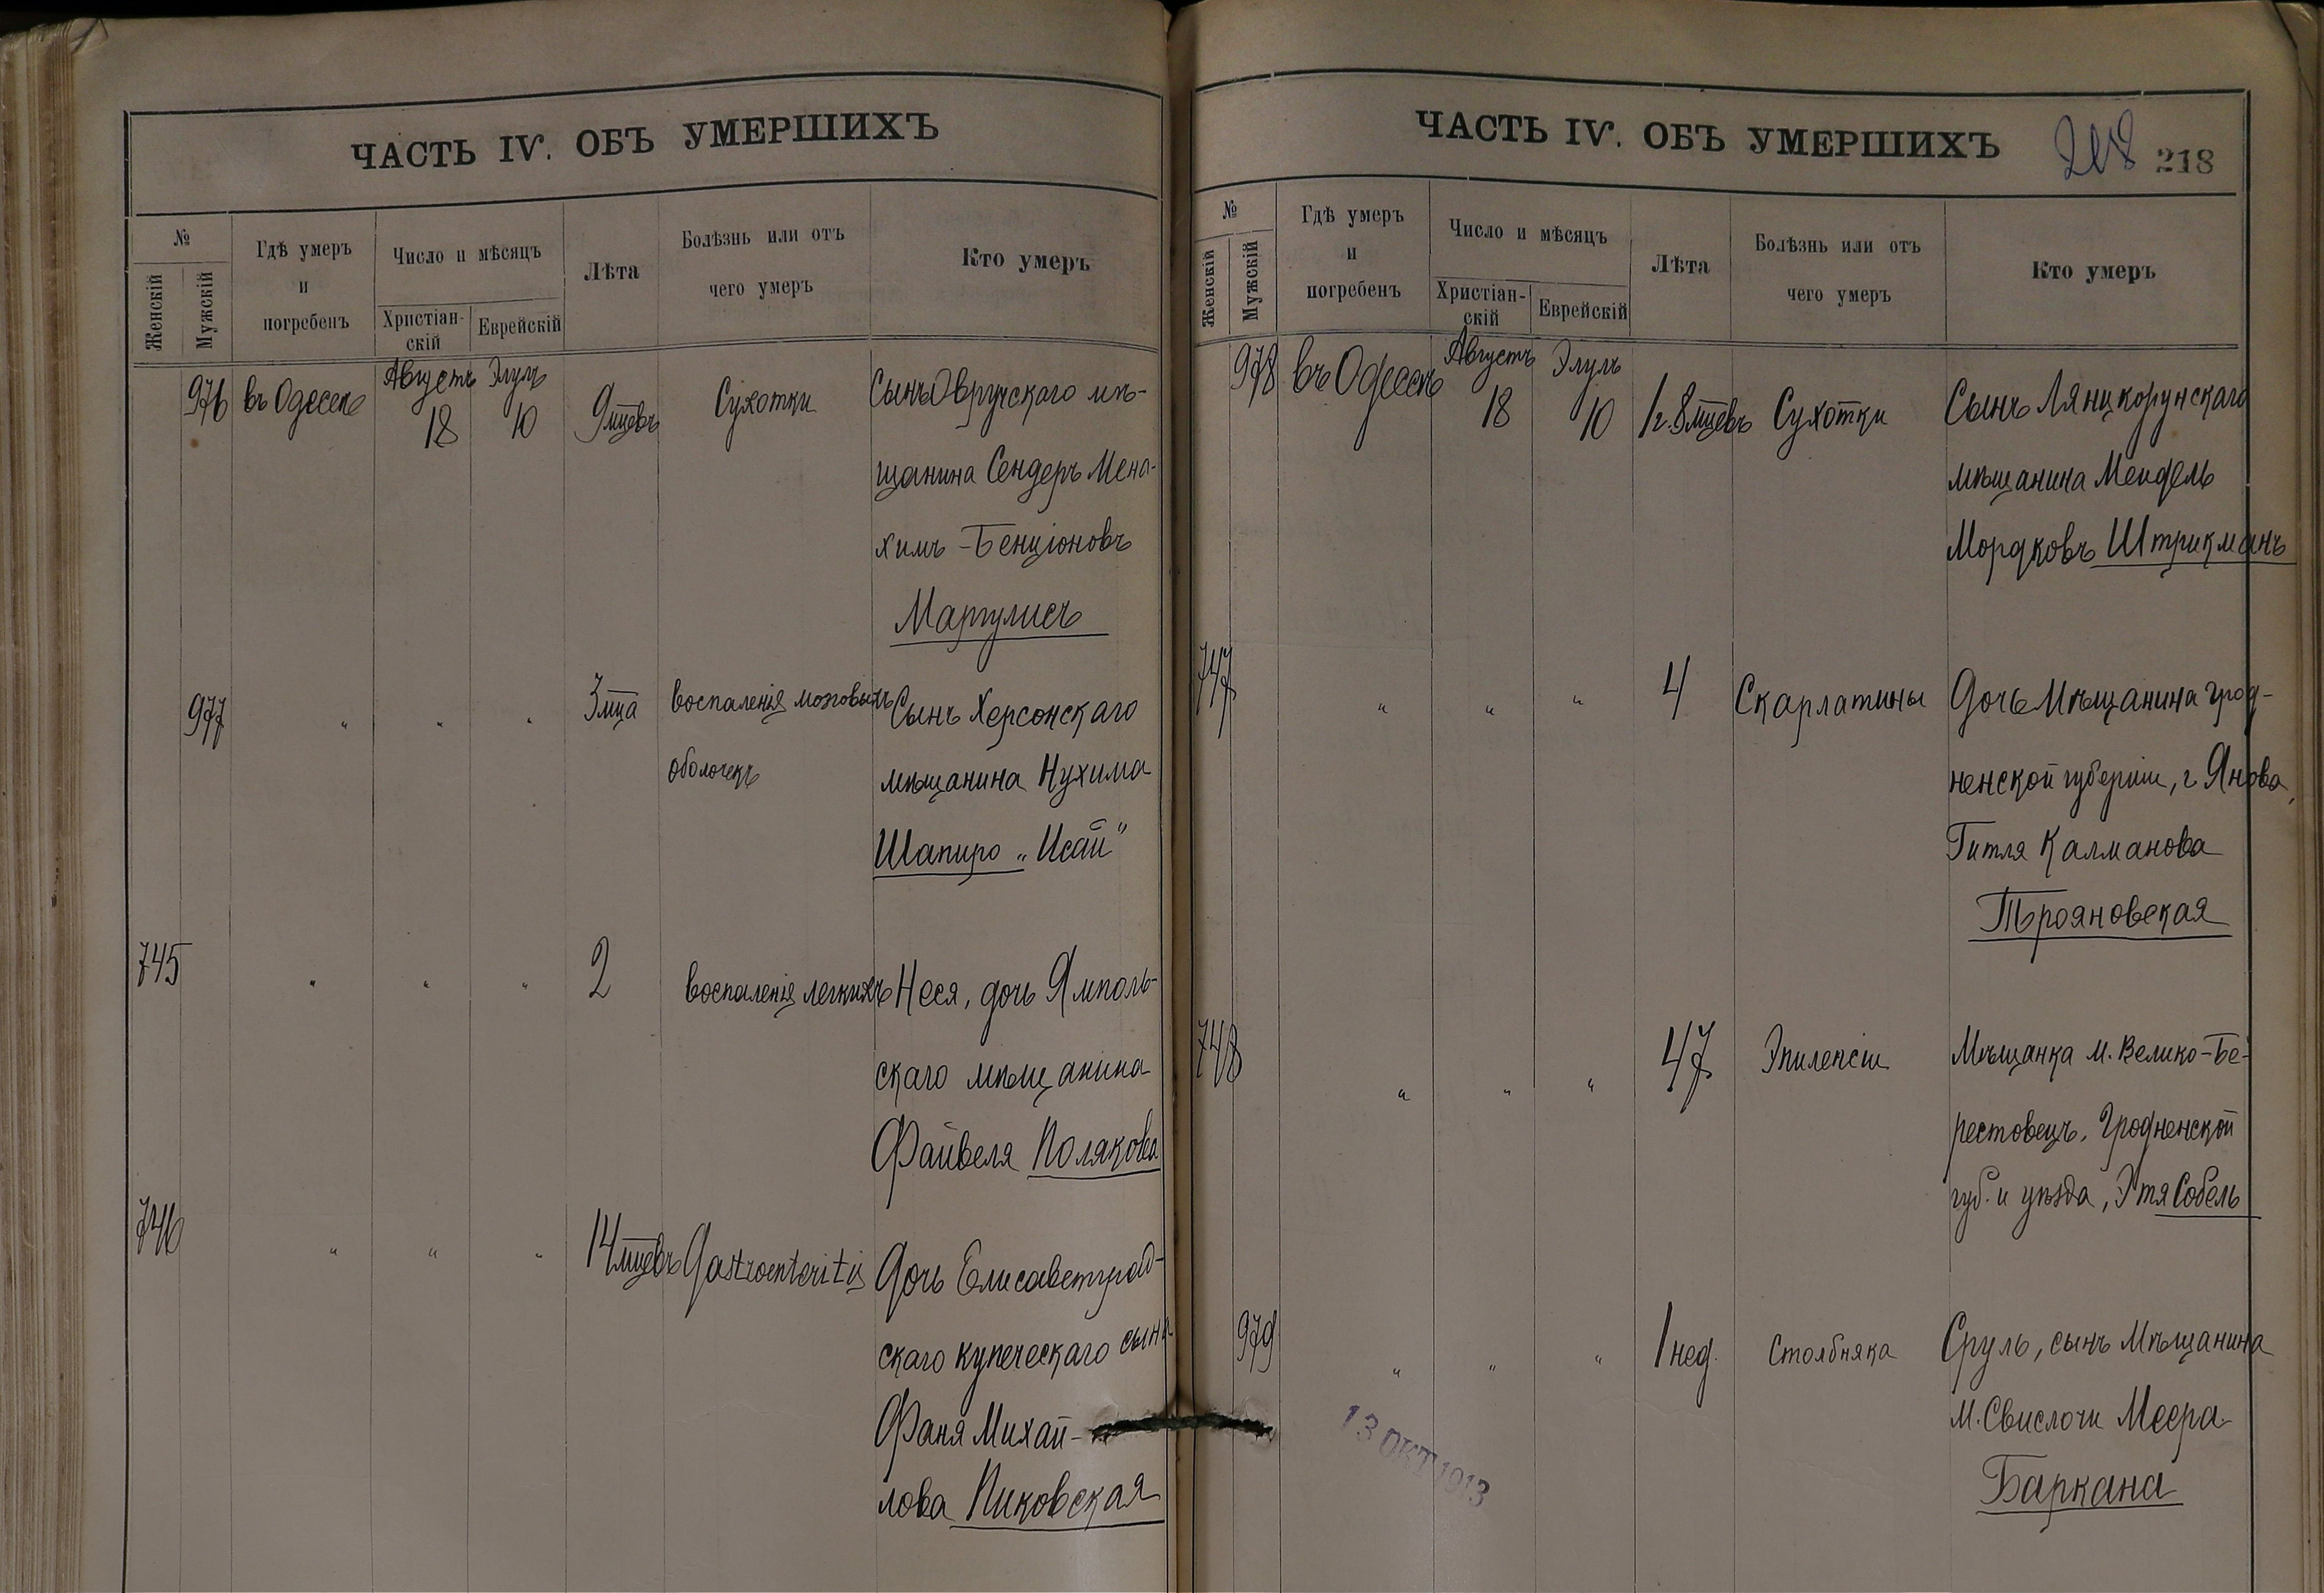 ЧАСТЬ IV. ОБЪ УМЕРШИХЪ
№
Женскій
Мужскій
Гдѣ умеръ
и
погребенъ
Число и мѣсяцъ
Христіан-
скій
Еврейскій
Лѣта
Болѣзнь или отъ
чего умеръ
Кто умеръ
976 въ Одессѣ Августъ 18 Элулъ 10 9 мцевъ Сухотки Сынъ Овручскаго мѣ-
щанина Сендеръ Мена-
химъ-Бенціоновъ
Маргулисъ
977 " " " 3 мца воспаленія мозговыхъ Сынъ Херсонскаго
оболочекъ мѣщанина Нухима
Шапиро „Исай"
745 " " " 2 воспаленія легкихъ Неся, дочь Ямполь-
скаго мѣщанина
Файвеля Полякова
746 " " " 14 мцевъ Gastroenteritis Дочь Елисаветград-
скаго купеческаго сына
Фаня Михай-
лова Пиковская
ЧАСТЬ IV. ОБЪ УМЕРШИХЪ
218 218
№
Женскій
Мужскій
Гдѣ умеръ
и
погребенъ
Число и мѣсяцъ
Христіан-
скій
Еврейскій
Лѣта
Болѣзнь или отъ
чего умеръ
Кто умеръ
978 въ Одессѣ Августъ 18 Элулъ 10 1 г. 8 мцевъ Сухотки Сынъ Лянцкорунскаго
мѣщанина Мендель
Мордковъ Штрикманъ
747 " " " 4 Скарлатины Дочь Мѣщанина Грод-
ненской губерніи, г. Янова,
Гитля Калманова
Трояновская
748 " " " 47 Эпилепсіи Мѣщанка м. Велико-Бе-
рестовецъ, Гродненской
губ. и уѣзда, Этя Собель
979 " " " 1 нед. Столбняка Сруль, сынъ Мѣщанина
м. Свислочи Меера
Баркана
13 ОКТ 1913